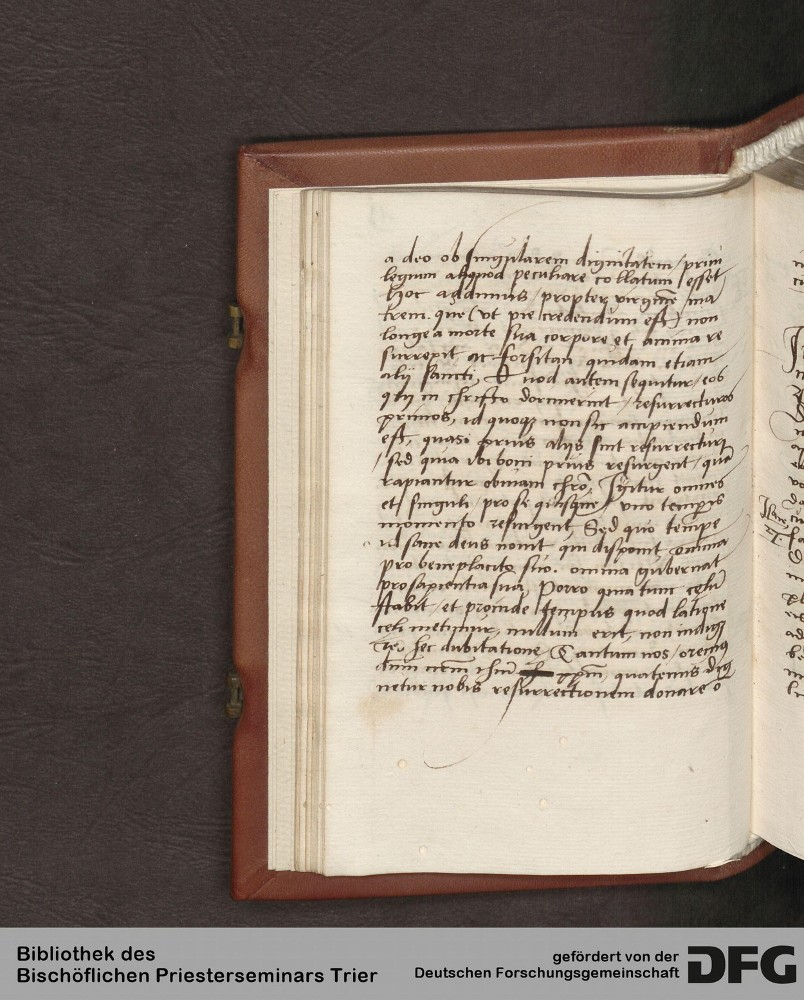 a deo ob singularem dignitatem / priui
legium aliquod peculiare collatum / esset
hoc addimus / propter virginē ma
trem. que (vt pie credendum est) non
longe a morte sua corpore et anima re
surrexit ac forsitan quidam etiam
alij sancti, Quod autem sequitur / eos
qui in christo dormierint / resurrecturos
primos, id quoqȝ non sic accipiendum
est, quasi prius alijs sint resurrecturi
/ sed quia ibi boni prius resurgent / quā
rapiantur obuiam chro, Igitur omnes
et singuli / pro se quisque / vno temporis
momento resurgent, Sed quo tempe
id sane deus nouit qui disponit omnia
pro beneplacito suo. omnia gubernat
pro sapientia sua, Porro quia tunc celū
stabit / et proinde tempus quod latione
celi metimur, nullum erit, non indiget
res hec dubitatione Tantum nos / oremus
dnm nrm ihm xpm, quatenus dig
netur nobis resurrectionem donare
Bibliothek des
Bischöflichen Priesterseminars Trier
gefördert von der
Deutschen Forschungsgemeinschaft
DFG